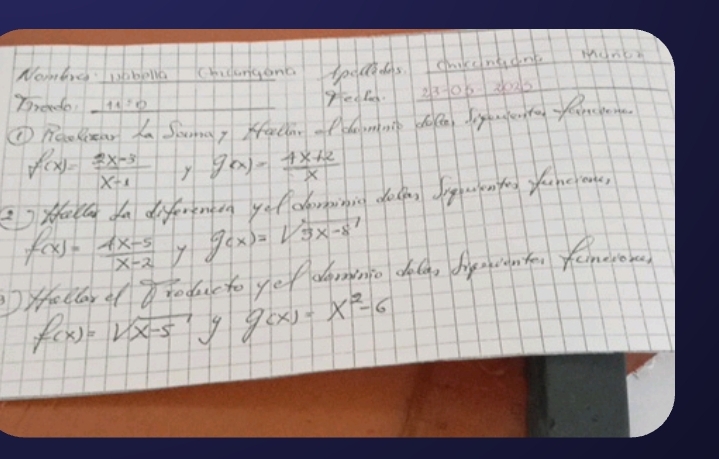 Nombres: Isabella Chicangana Apellidos: Chicangana Muñoz
Grado: 11°D Fecha: 23-05-2025
① Realizar La Suma y Hallar el dominio de las siguientes funciones
f(x)= 2x-3/x-1 y g(x)= 4x+2/x
2) Hallar La diferencia y el dominio de las siguientes funciones
f(x)= 4x-5/x-2 y g(x)= √3x-8
3) Hallar el Producto y el dominio de las siguientes funciones
f(x)= √x-5 y g(x)= x²-6